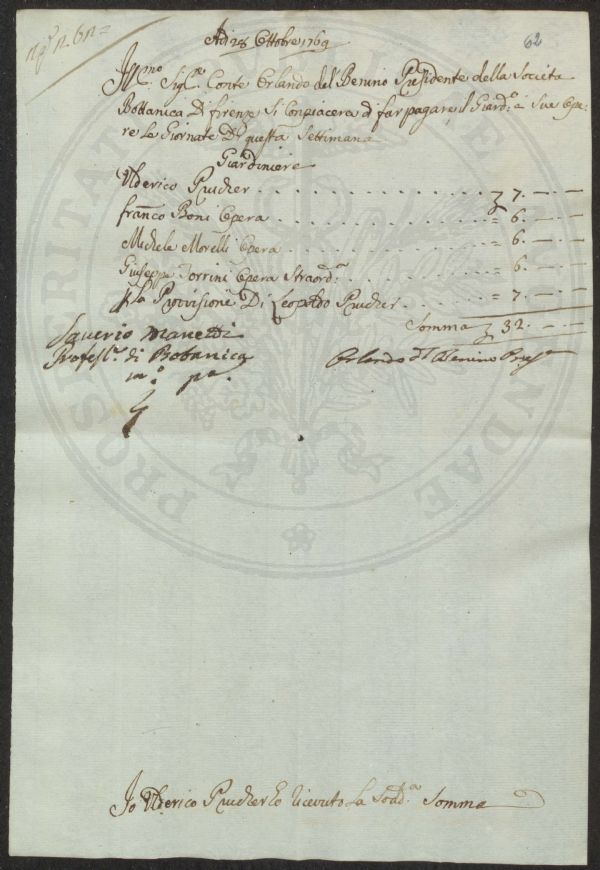 62
Adi 28 Ottobre 1769
Ill:mo Sig:re Conte Orlando del Benino Presidente della Società
Bottanica Di firenze Si Conpiacera di far pagare il Giard:e e Sue Ope
re Le Giornate Di questa Settimana
Giardiniere
Ulderico Prucher . . . . . . . . . . . . 7. — —
franco Boni Opera . . . . . . . . . . . = 6. — —
Michele Morelli Opera . . . . . . . . . . = 6. — —
Giuseppe Torrini Opera Straord:a . . . . . . 6. — —
p la Provisione Di Leopoldo Prucher . . . . = 7. — —
Somma 32. — —
Saverio Manetti
Profess:re di Botanica
m:o p:a
Orlando del Benino Pres:e
Io Ulderico Prucher ho riceuto la Sod:a Somma
PROSPERITATI PUBLICAE AUGENDAE